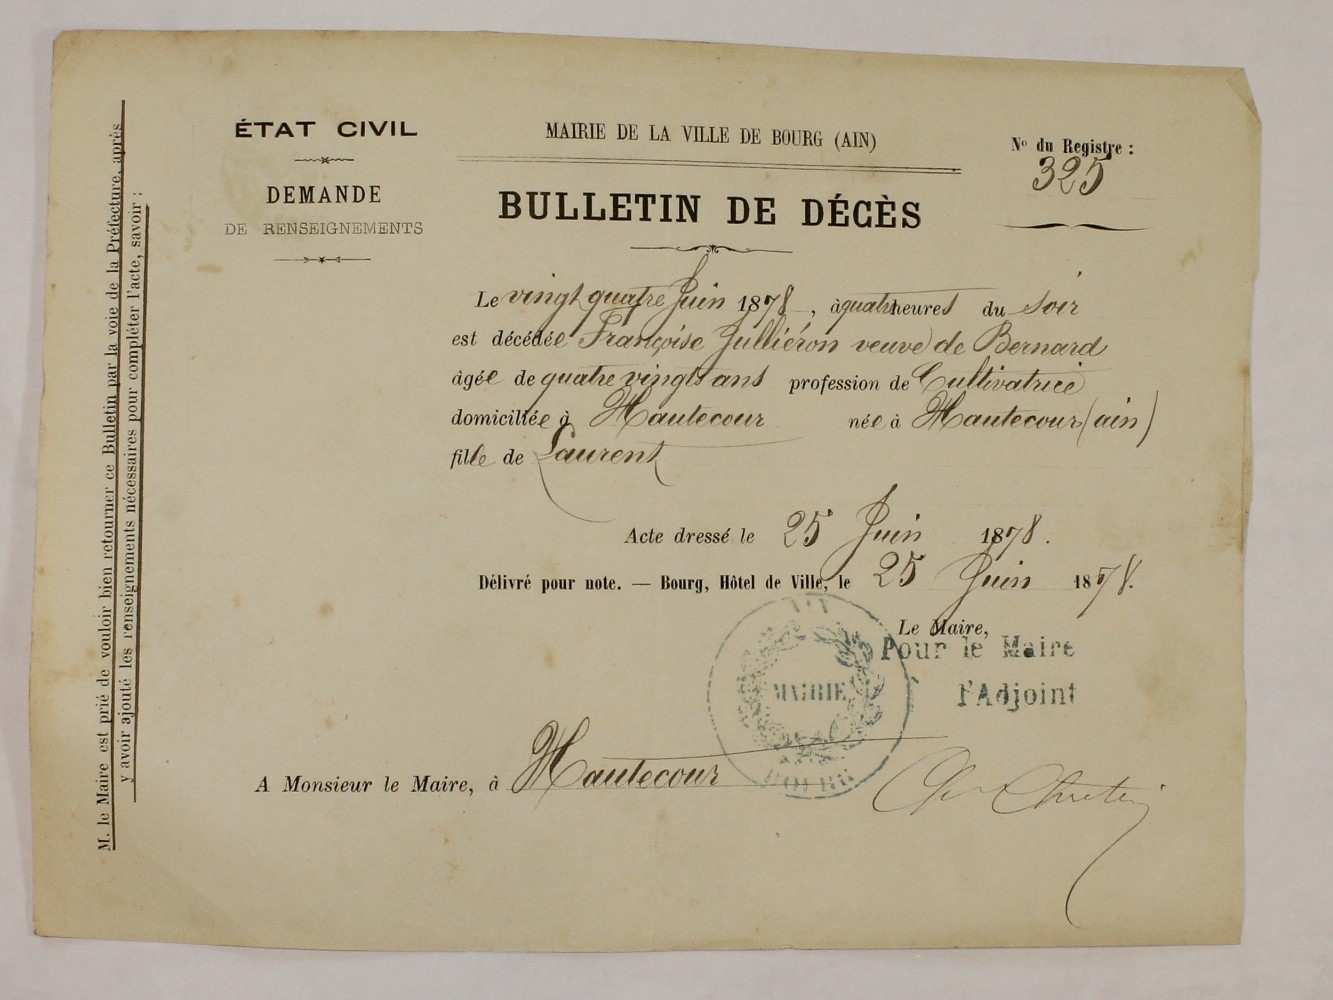 M. le Maire est prié de vouloir bien retourner ce Bulletin par la voie de la Préfecture, après
y avoir ajouté les renseignements nécessaires pour compléter l'acte, savoir :
ÉTAT CIVIL
DEMANDE
DE RENSEIGNEMENTS
MAIRIE DE LA VILLE DE BOURG (AIN)
BULLETIN DE DÉCÈS
N° du Registre :
325
Le vingt quatre Juin 1878, à quatre heures du soir
est décédée Françoise Julliéron veuve de Bernard
âgée de quatre vingts ans profession de Cultivatrice
domiciliée à Hautecour née à Hautecour (ain)
fille de Laurent
Acte dressé le 25 Juin 1878.
Délivré pour note. — Bourg, Hôtel de Ville, le 25 Juin 1878.
Le Maire,
Pour le Maire
l'Adjoint
MAIRIE
BOURG
A Monsieur le Maire, à Hautecour